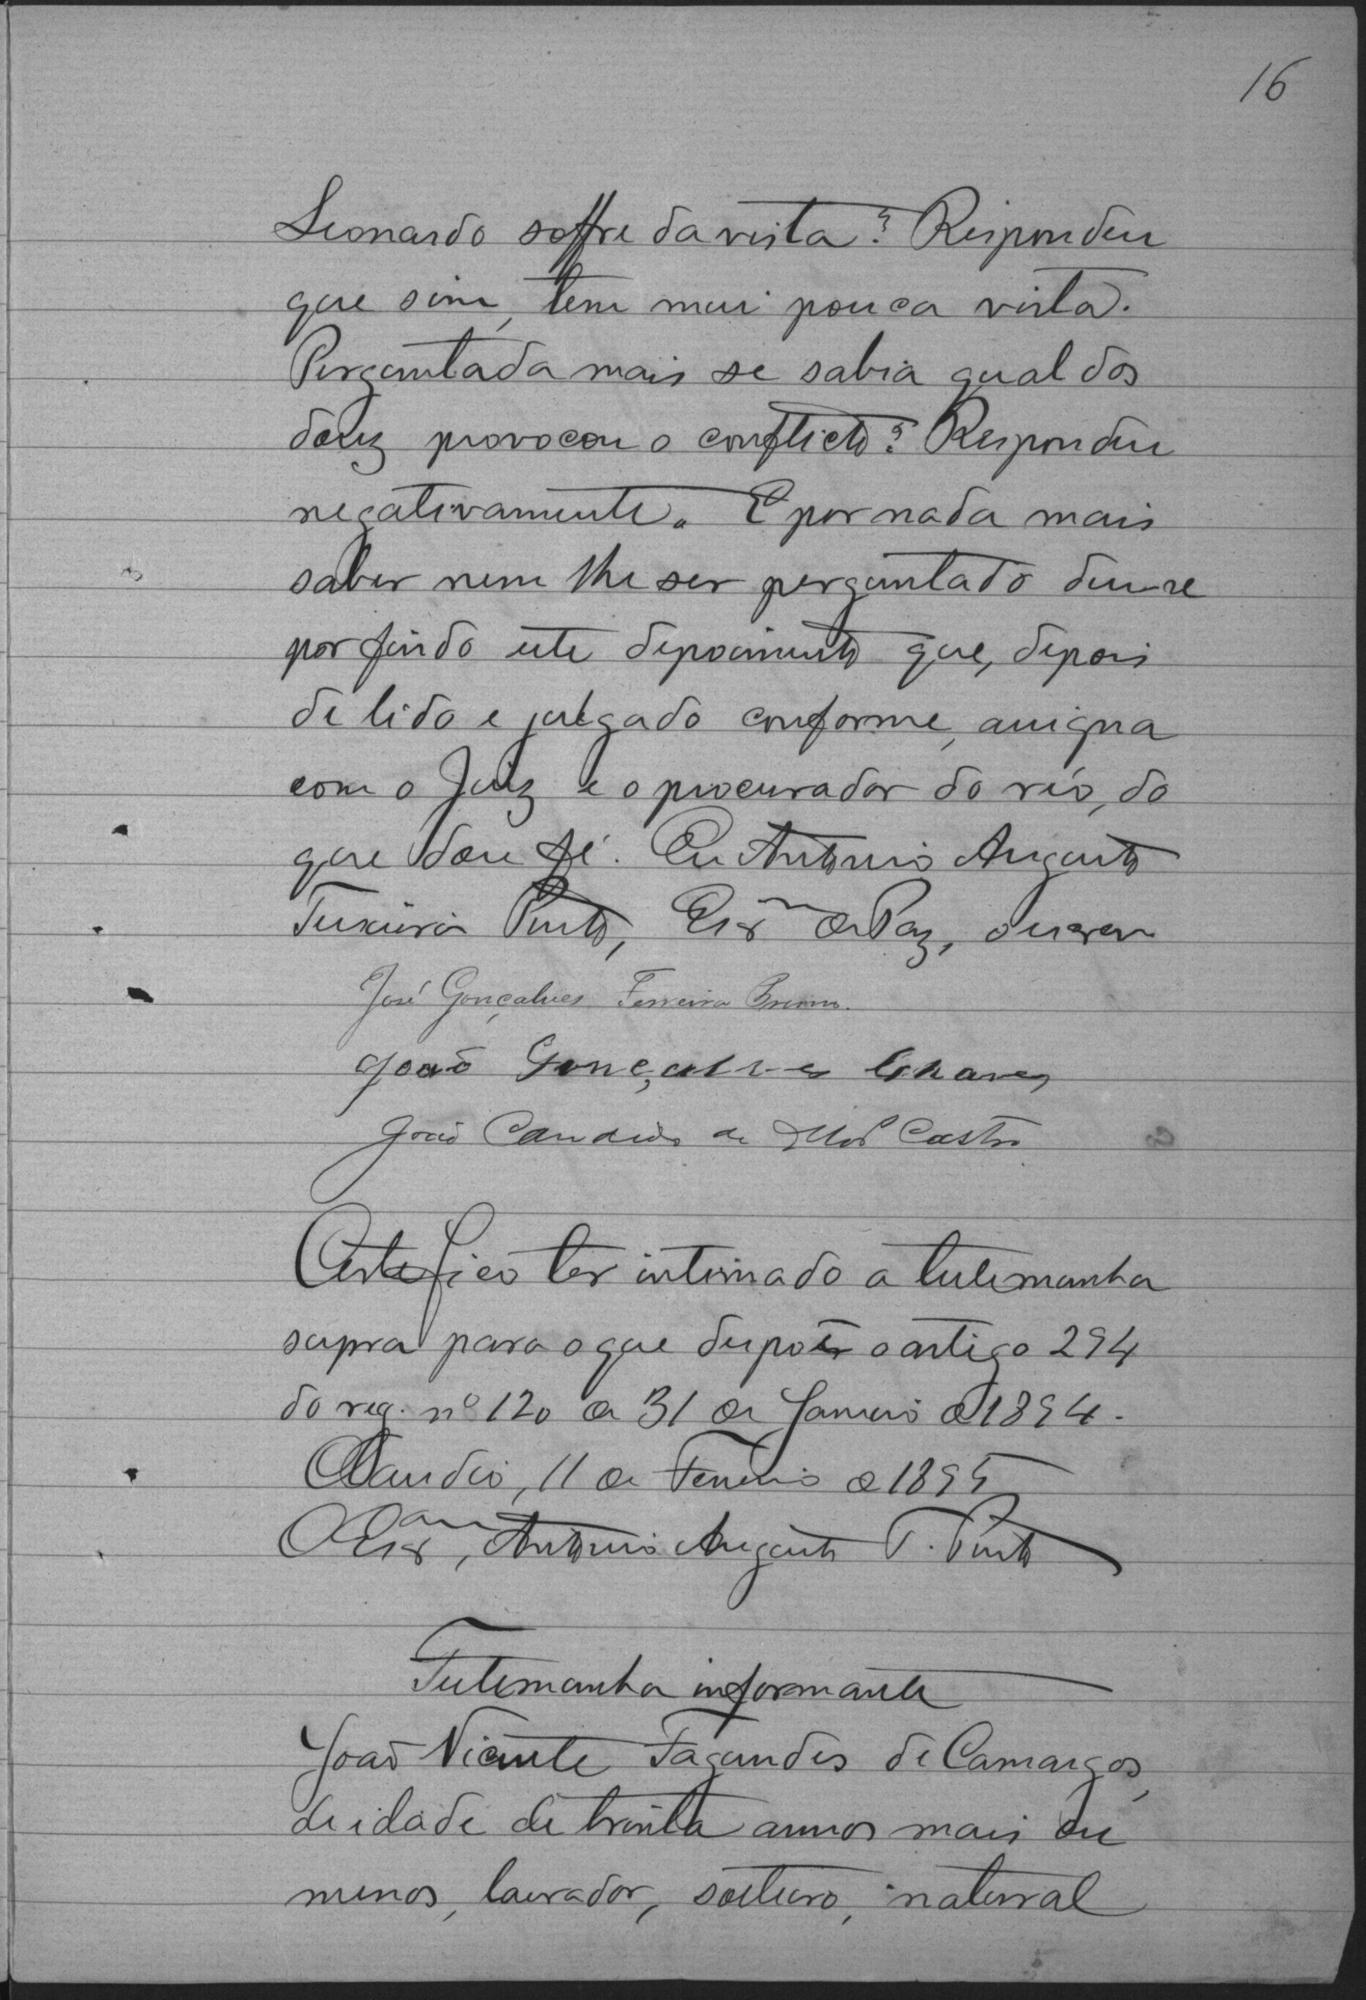 16
Leonardo soffre da vista? Respondeu
que sim, tem mui pouca vista.
Perguntada mais se sabia qual dos
douz provocou o conflicto? Respondeu
negativamente. E por nada mais
saber nem lhe ser perguntado deu-se
por findo este depoimento que, depois
de lido e julgado conforme, assigna
com o Juiz e o procurador do réo, do
que dou fé. Eu Antonio Augusto
Teixeira Pinto, Escram de Paz, o escrevi
José Gonçalves Ferreira Brum.
João Gonçalves Chaves
João Candido de Castro
Certefico ter intimado a testemunha
supra para o que dispoēr o artigo 294
do reg. nº 120 de 31 de Janeiro de 1894.
Claudio, 11 de Fevereiro de 1895
O Escram, Antonio Augusto T. Pinto
Testemunha informante
João Vicente Fagundes de Camargos,
de idade de trinta annos mais ou
menos, lavrador, solteiro, natural